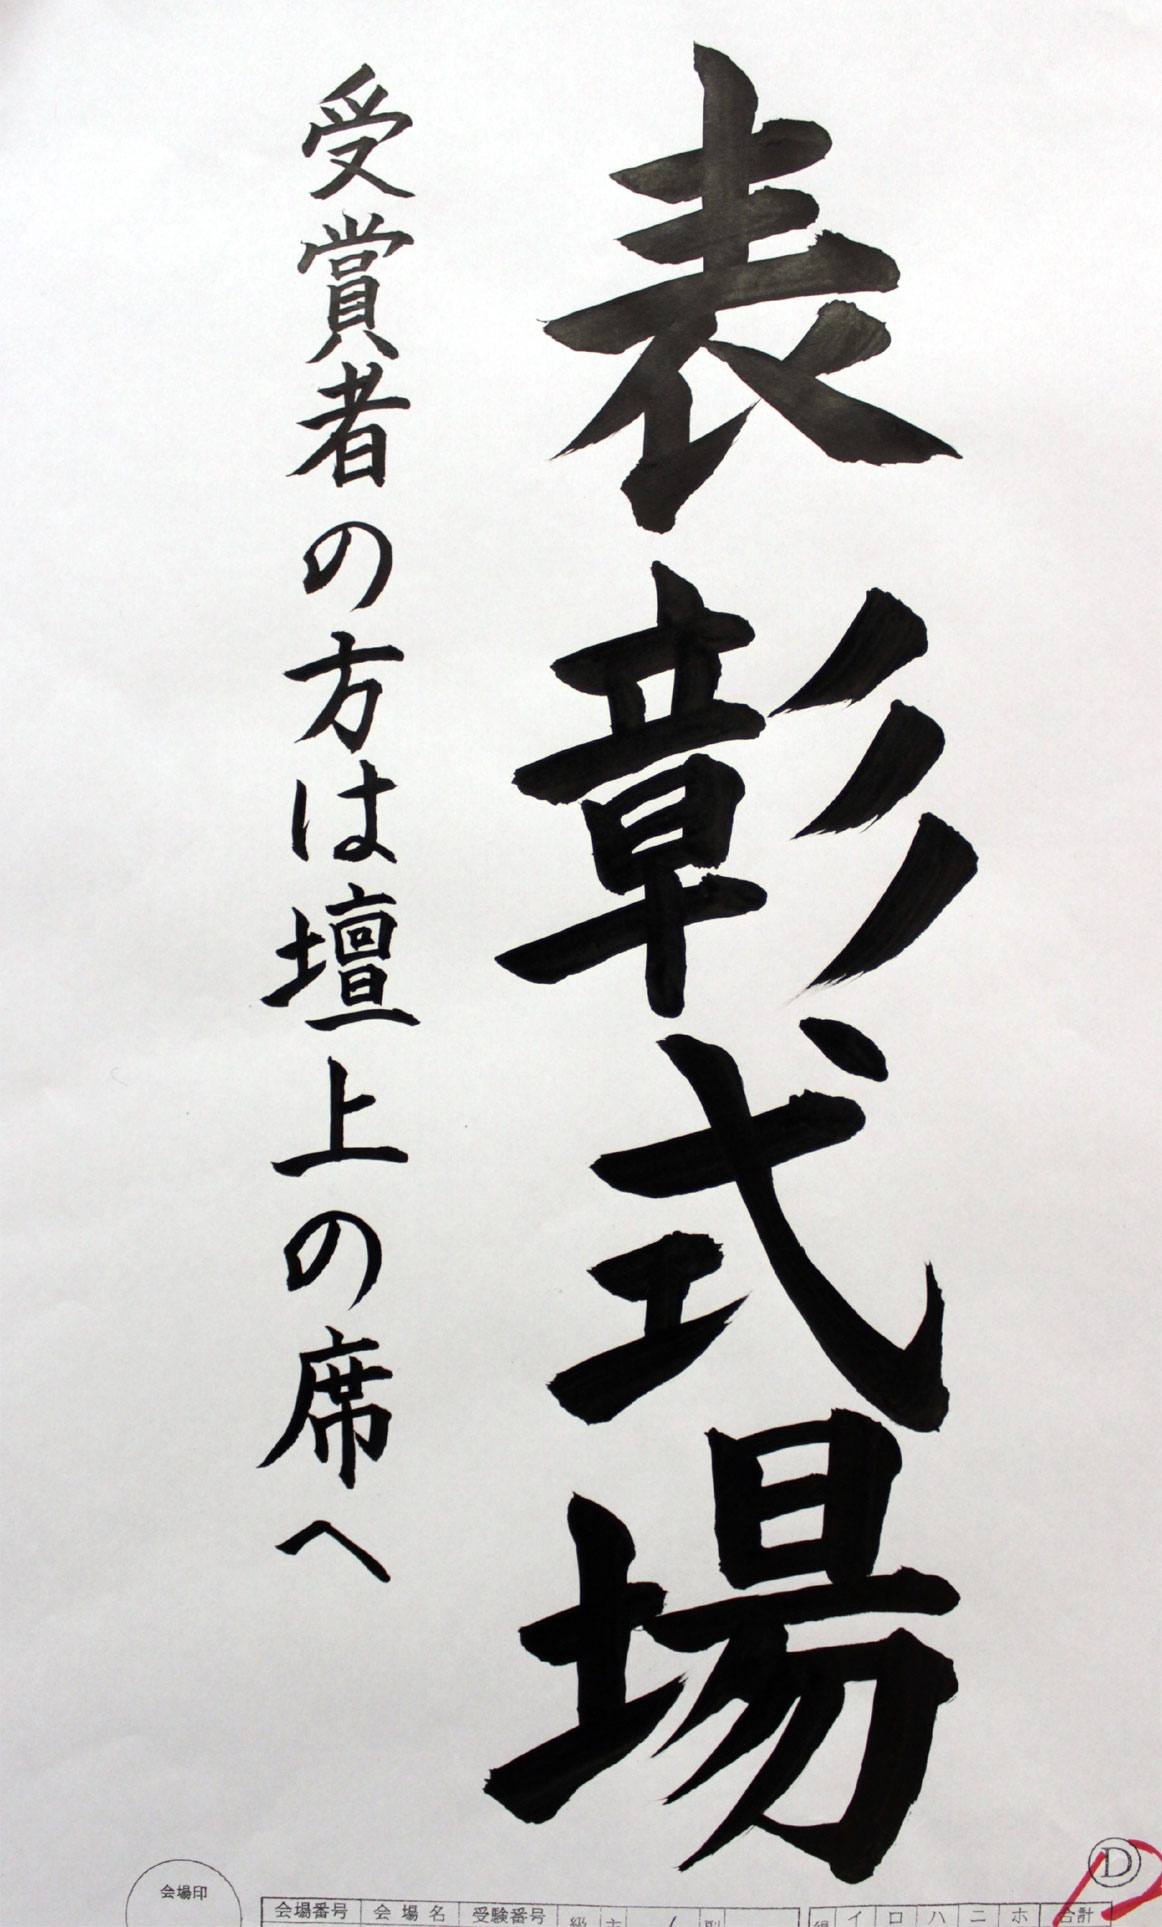 表彰式場
受賞者の方は壇上の席へ
D
会場印
会場番号 会場名 受験番号 級 イ ロ ハ ニ ホ 合計